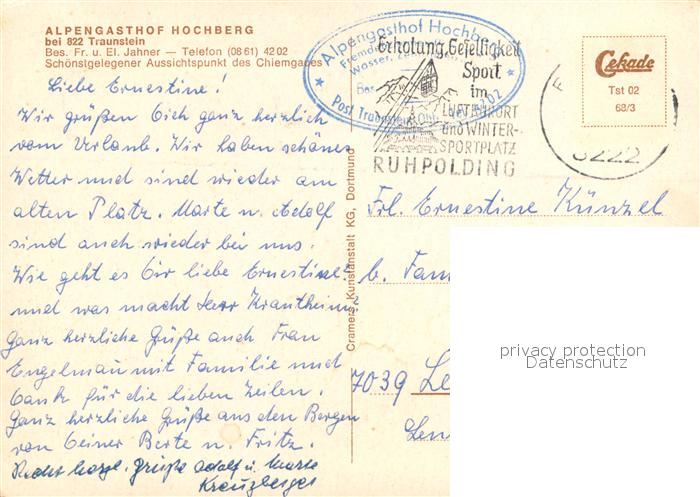 ALPENGASTHOF HOCHBERG
bei 822 Traunstein
Bes. Fr. u. El. Jahner — Telefon (08 61) 42 02
Schönstgelegener Aussichtspunkt des Chiemgaues
Liebe Ernestine!
Wir grüßen Dich ganz herzlich
vom Urlaub. Wir haben schönes
Wetter und sind wieder am
alten Platz. Marte u. Adolf
sind auch wieder bei uns.
Wie geht es Dir liebe Ernestine?
und was macht Herr Krautheim.
Ganz herzliche Grüße auch Frau
Engelmau mit Familie und
Dank für die lieben Zeilen.
Ganz herzliche Grüße aus den Bergen
von Deiner Berte u. Fritz.
Recht herzl. Grüße Adolf u. Marte
Kreuzberger
Cramers Kunstanstalt KG, Dortmund
Alpengasthof Hochb
Post Traunstein Obb. 4202
Erholung, Geselligkeit
Sport
im
LUFTKURORT
und WINTER-
SPORTPLATZ
RUHPOLDING
8222
Cekade
Tst 02
68/3
Frl. Ernestine Künzel
b. Fam
7039
privacy protection
Datenschutz